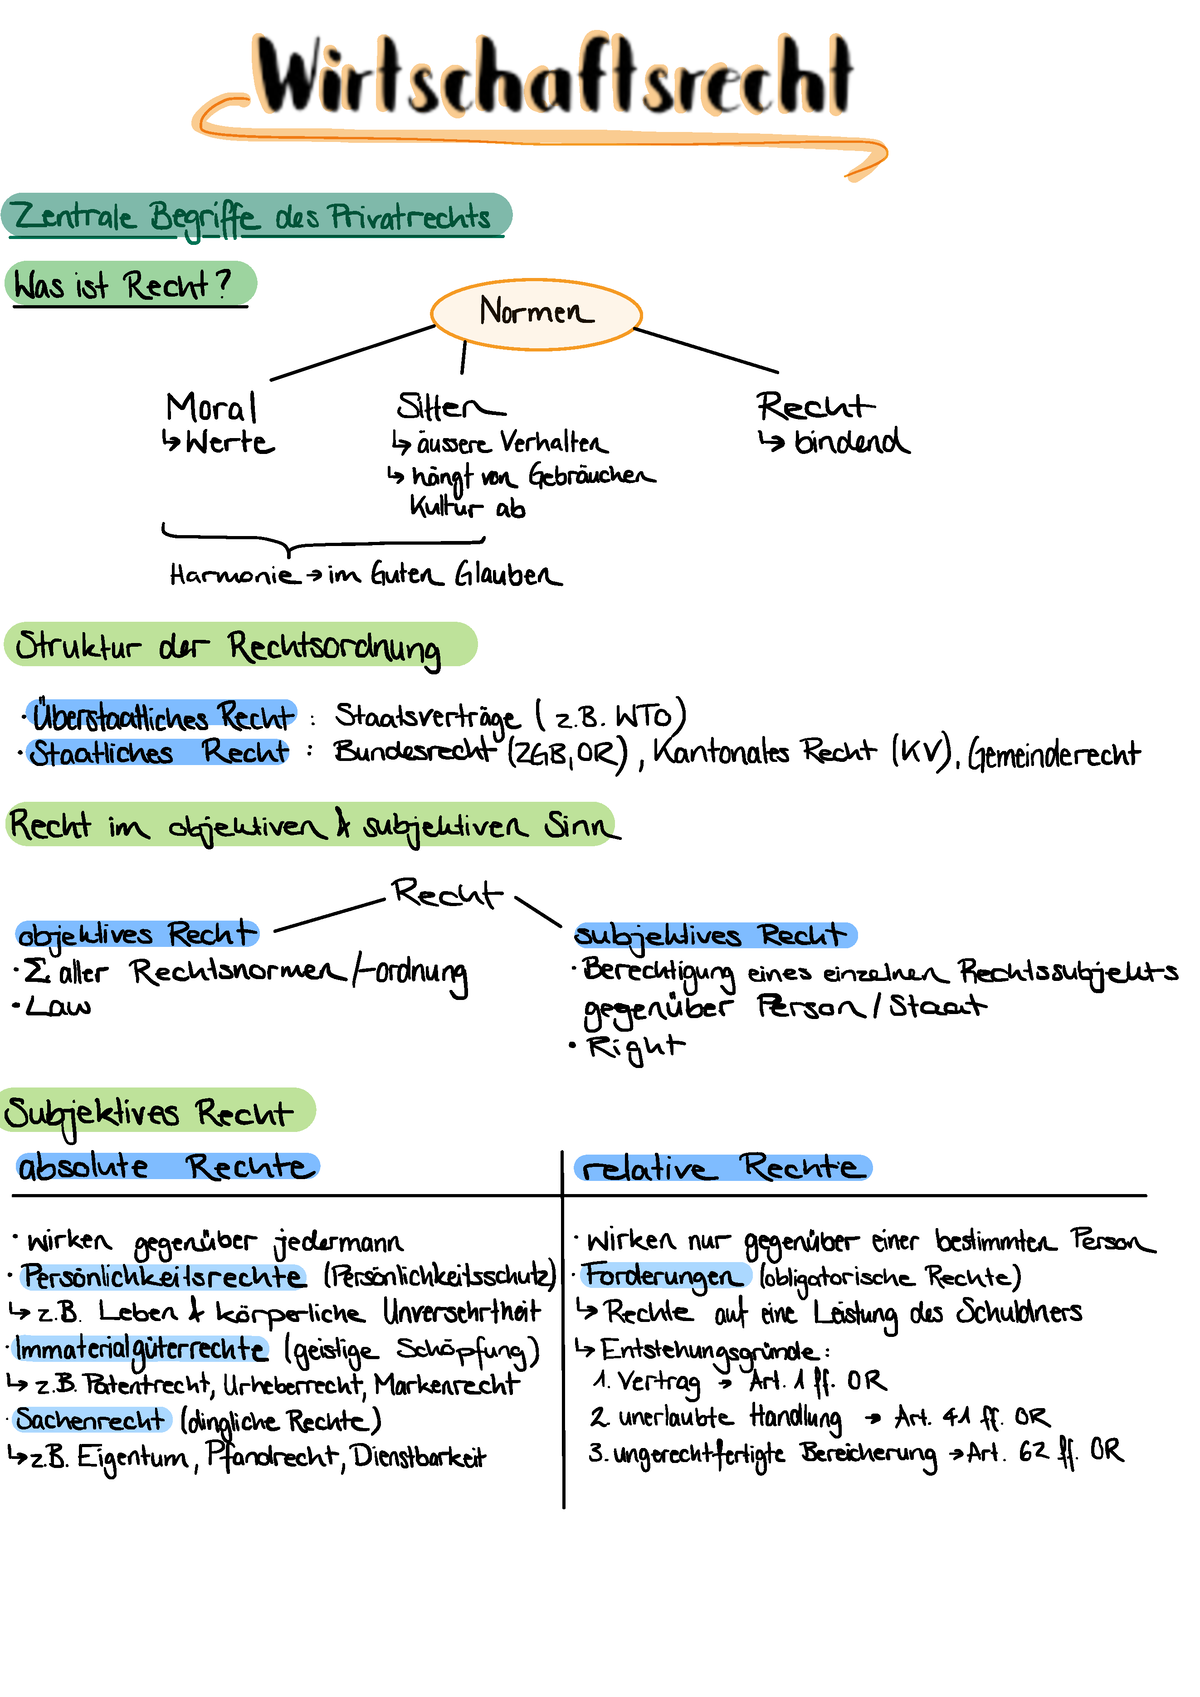 Wirtschaftsrecht
Zentrale Begriffe des Privatrechts
Was ist Recht?
Normen
Moral
↳ Werte
Sitten
↳ äussere Verhalten
↳ hängt von Gebräuchen
Kultur ab
Recht
↳ bindend
Harmonie → im Guten Glauben
Struktur der Rechtsordnung
· Überstaatliches Recht : Staatsverträge (z.B. WTO)
· Staatliches Recht : Bundesrecht (ZGB, OR), Kantonales Recht (KV), Gemeinderecht
Recht im objektiven & subjektiven Sinn
Recht
objektives Recht
· Σ aller Rechtsnormen/-ordnung
· Law
subjektives Recht
· Berechtigung eines einzelnen Rechtssubjekts
gegenüber Person/Staat
· Right
Subjektives Recht
absolute Rechte
· wirken gegenüber jedermann
· Persönlichkeitsrechte (Persönlichkeitsschutz)
↳ z.B. Leben & körperliche Unversehrtheit
· Immaterialgüterrechte (geistige Schöpfung)
↳ z.B. Patentrecht, Urheberrecht, Markenrecht
· Sachenrecht (dingliche Rechte)
↳ z.B. Eigentum, Pfandrecht, Dienstbarkeit
relative Rechte
· wirken nur gegenüber einer bestimmten Person
· Forderungen (obligatorische Rechte)
↳ Rechte auf eine Leistung des Schuldners
↳ Entstehungsgründe:
1. Vertrag → Art. 1 ff. OR
2. unerlaubte Handlung → Art. 41 ff. OR
3. ungerechtfertigte Bereicherung → Art. 62 ff. OR